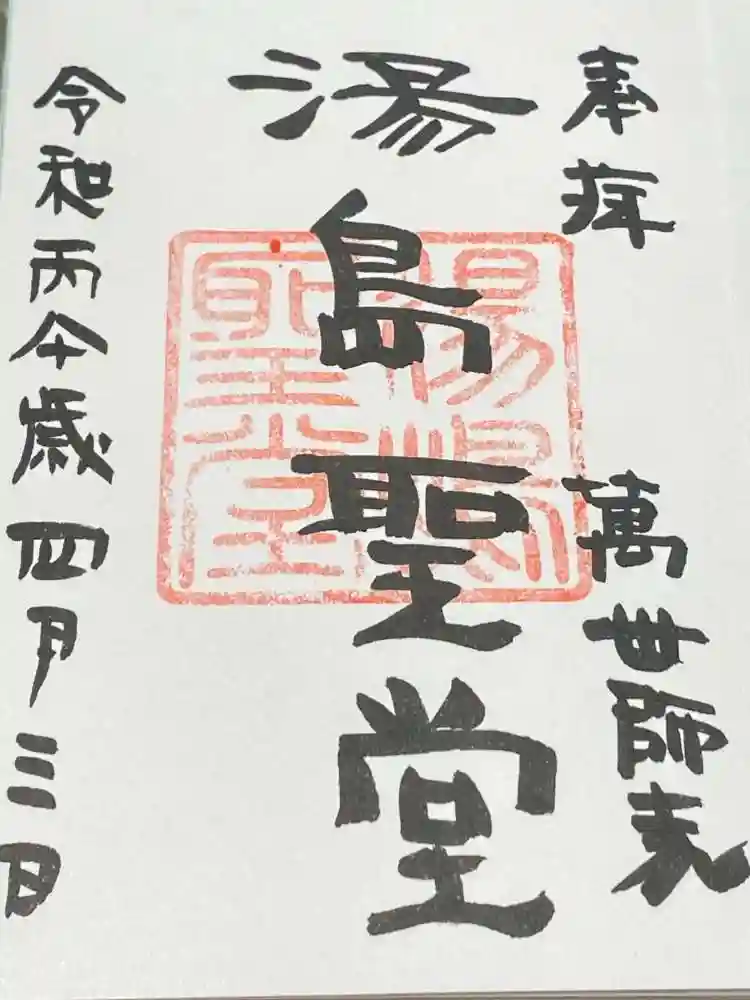 奉拝 萬世師表
湯島聖堂
湯島聖堂
令和丙午歳四月三日